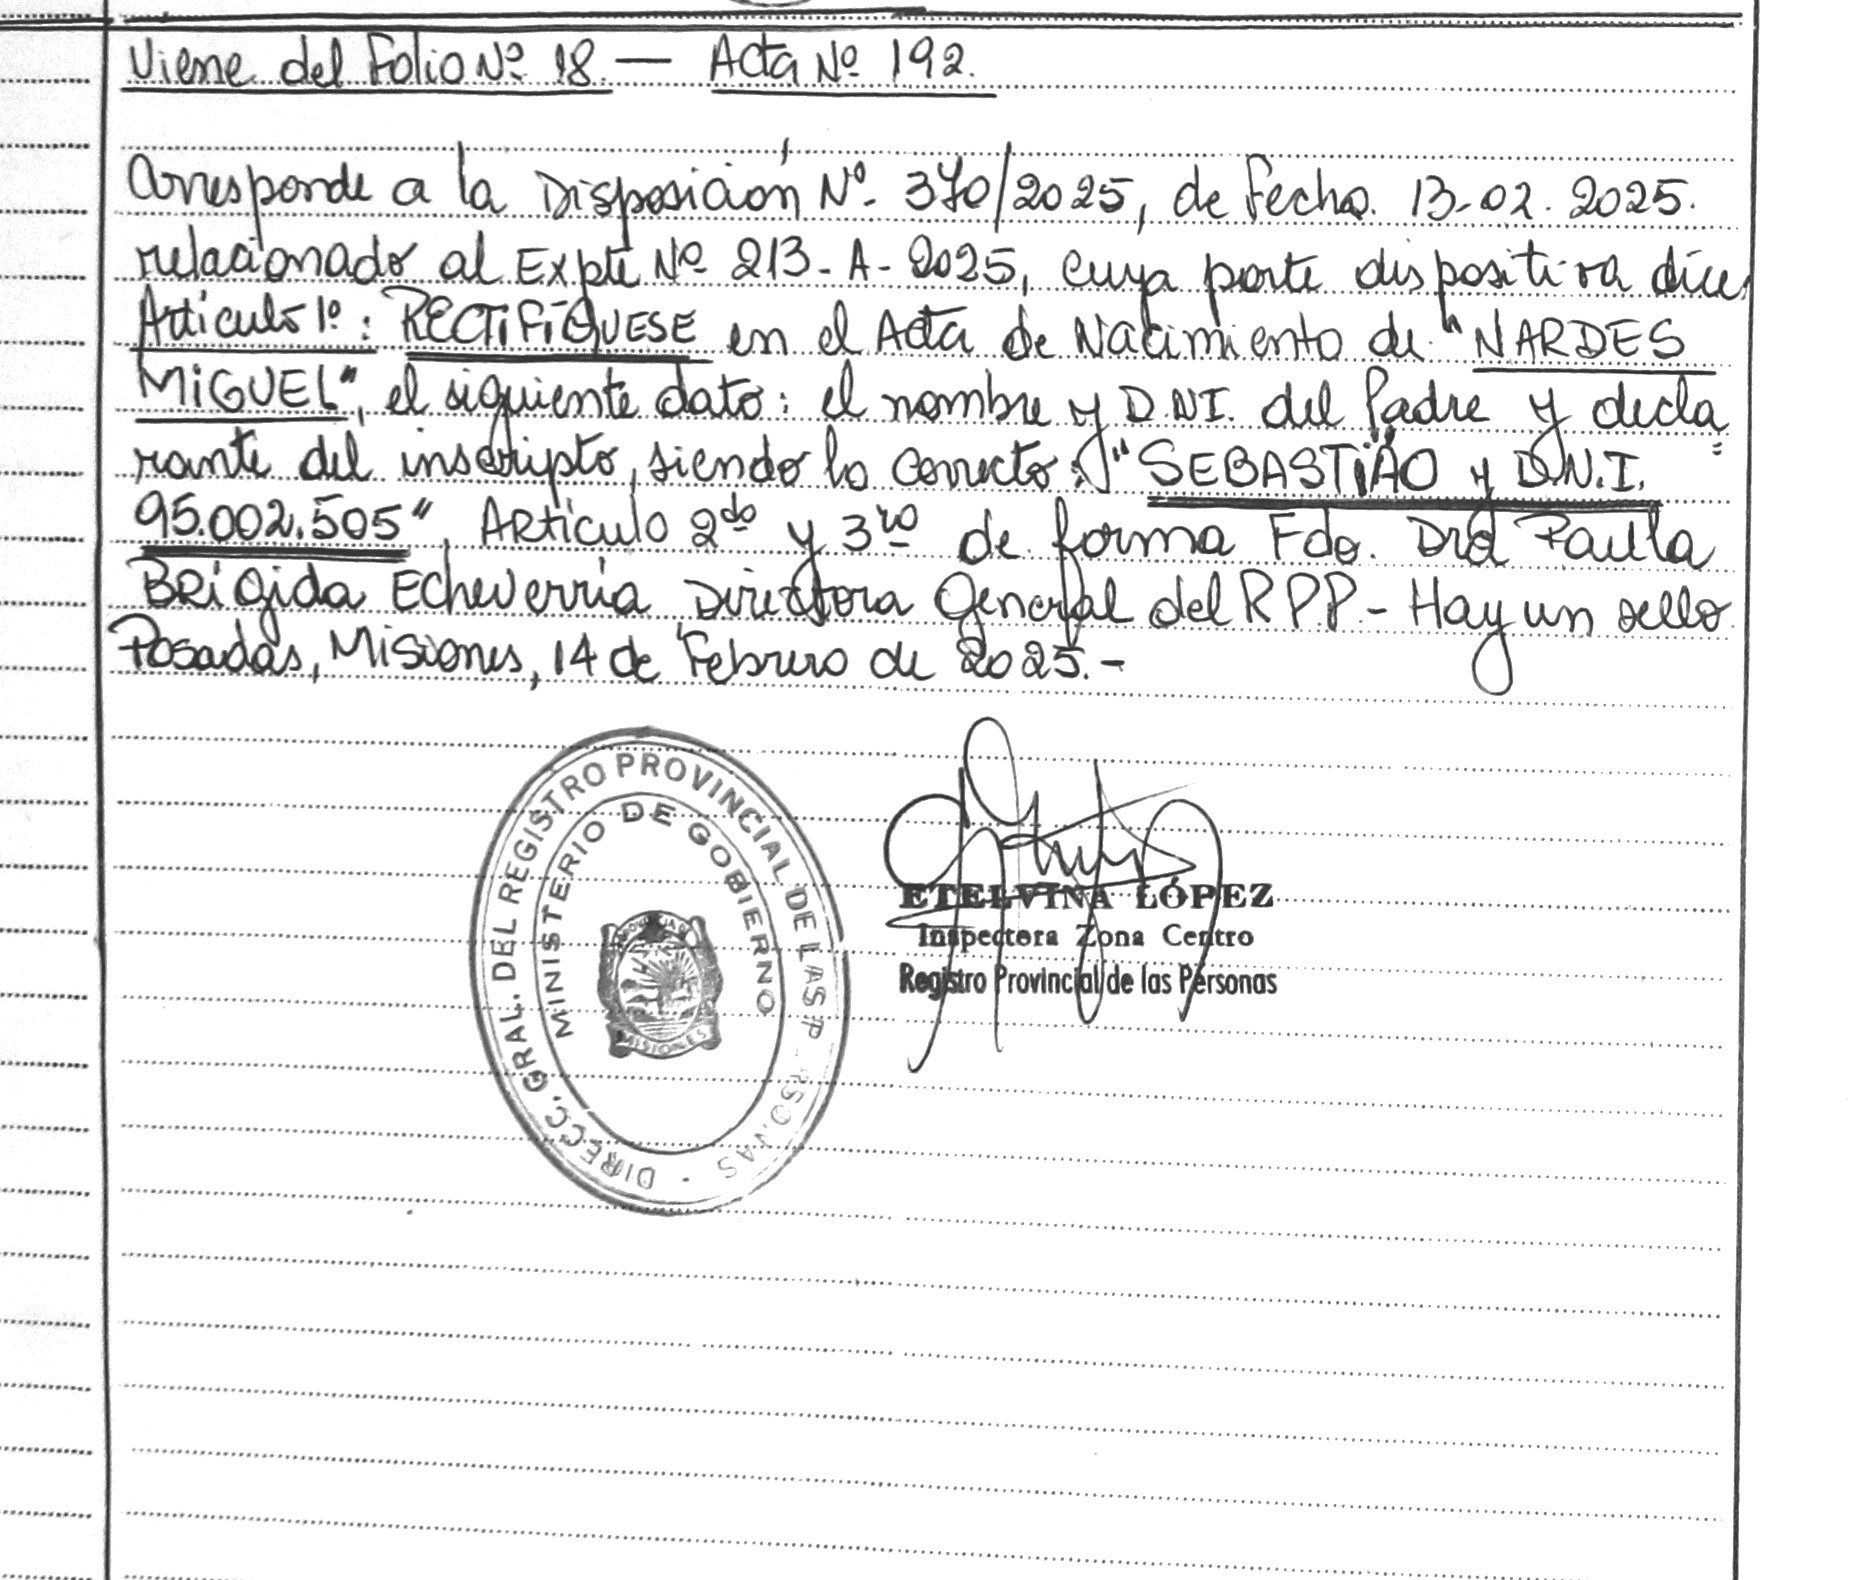 Viene del Folio Nº 18 — Acta Nº 192.
Corresponde a la Disposición Nº 370/2025, de Fecha 13-02-2025.
relacionado al Expte Nº 213-A-2025, cuya parte dispositiva dice,
Articulo 1º: RECTIFÍQUESE en el Acta de Nacimiento de "NARDES
MIGUEL", el siguiente dato: el nombre y D.NI. del Padre y decla
rante del inscripto, siendo lo correcto: "SEBASTIÃO y D.N.I.
95.002.505", Articulo 2do y 3ro de forma Fdo. Dra Paula
Brigida Echeverria Directora General del RPP - Hay un sello
Posadas, Misiones, 14 de Febrero de 2025.-
DIRECC. GRAL. DEL REGISTRO PROVINCIAL DE LAS PERSONAS -
MINISTERIO DE GOBIERNO
MISIONES
ETELVINA LÓPEZ
Inspectora Zona Centro
Registro Provincial de las Personas